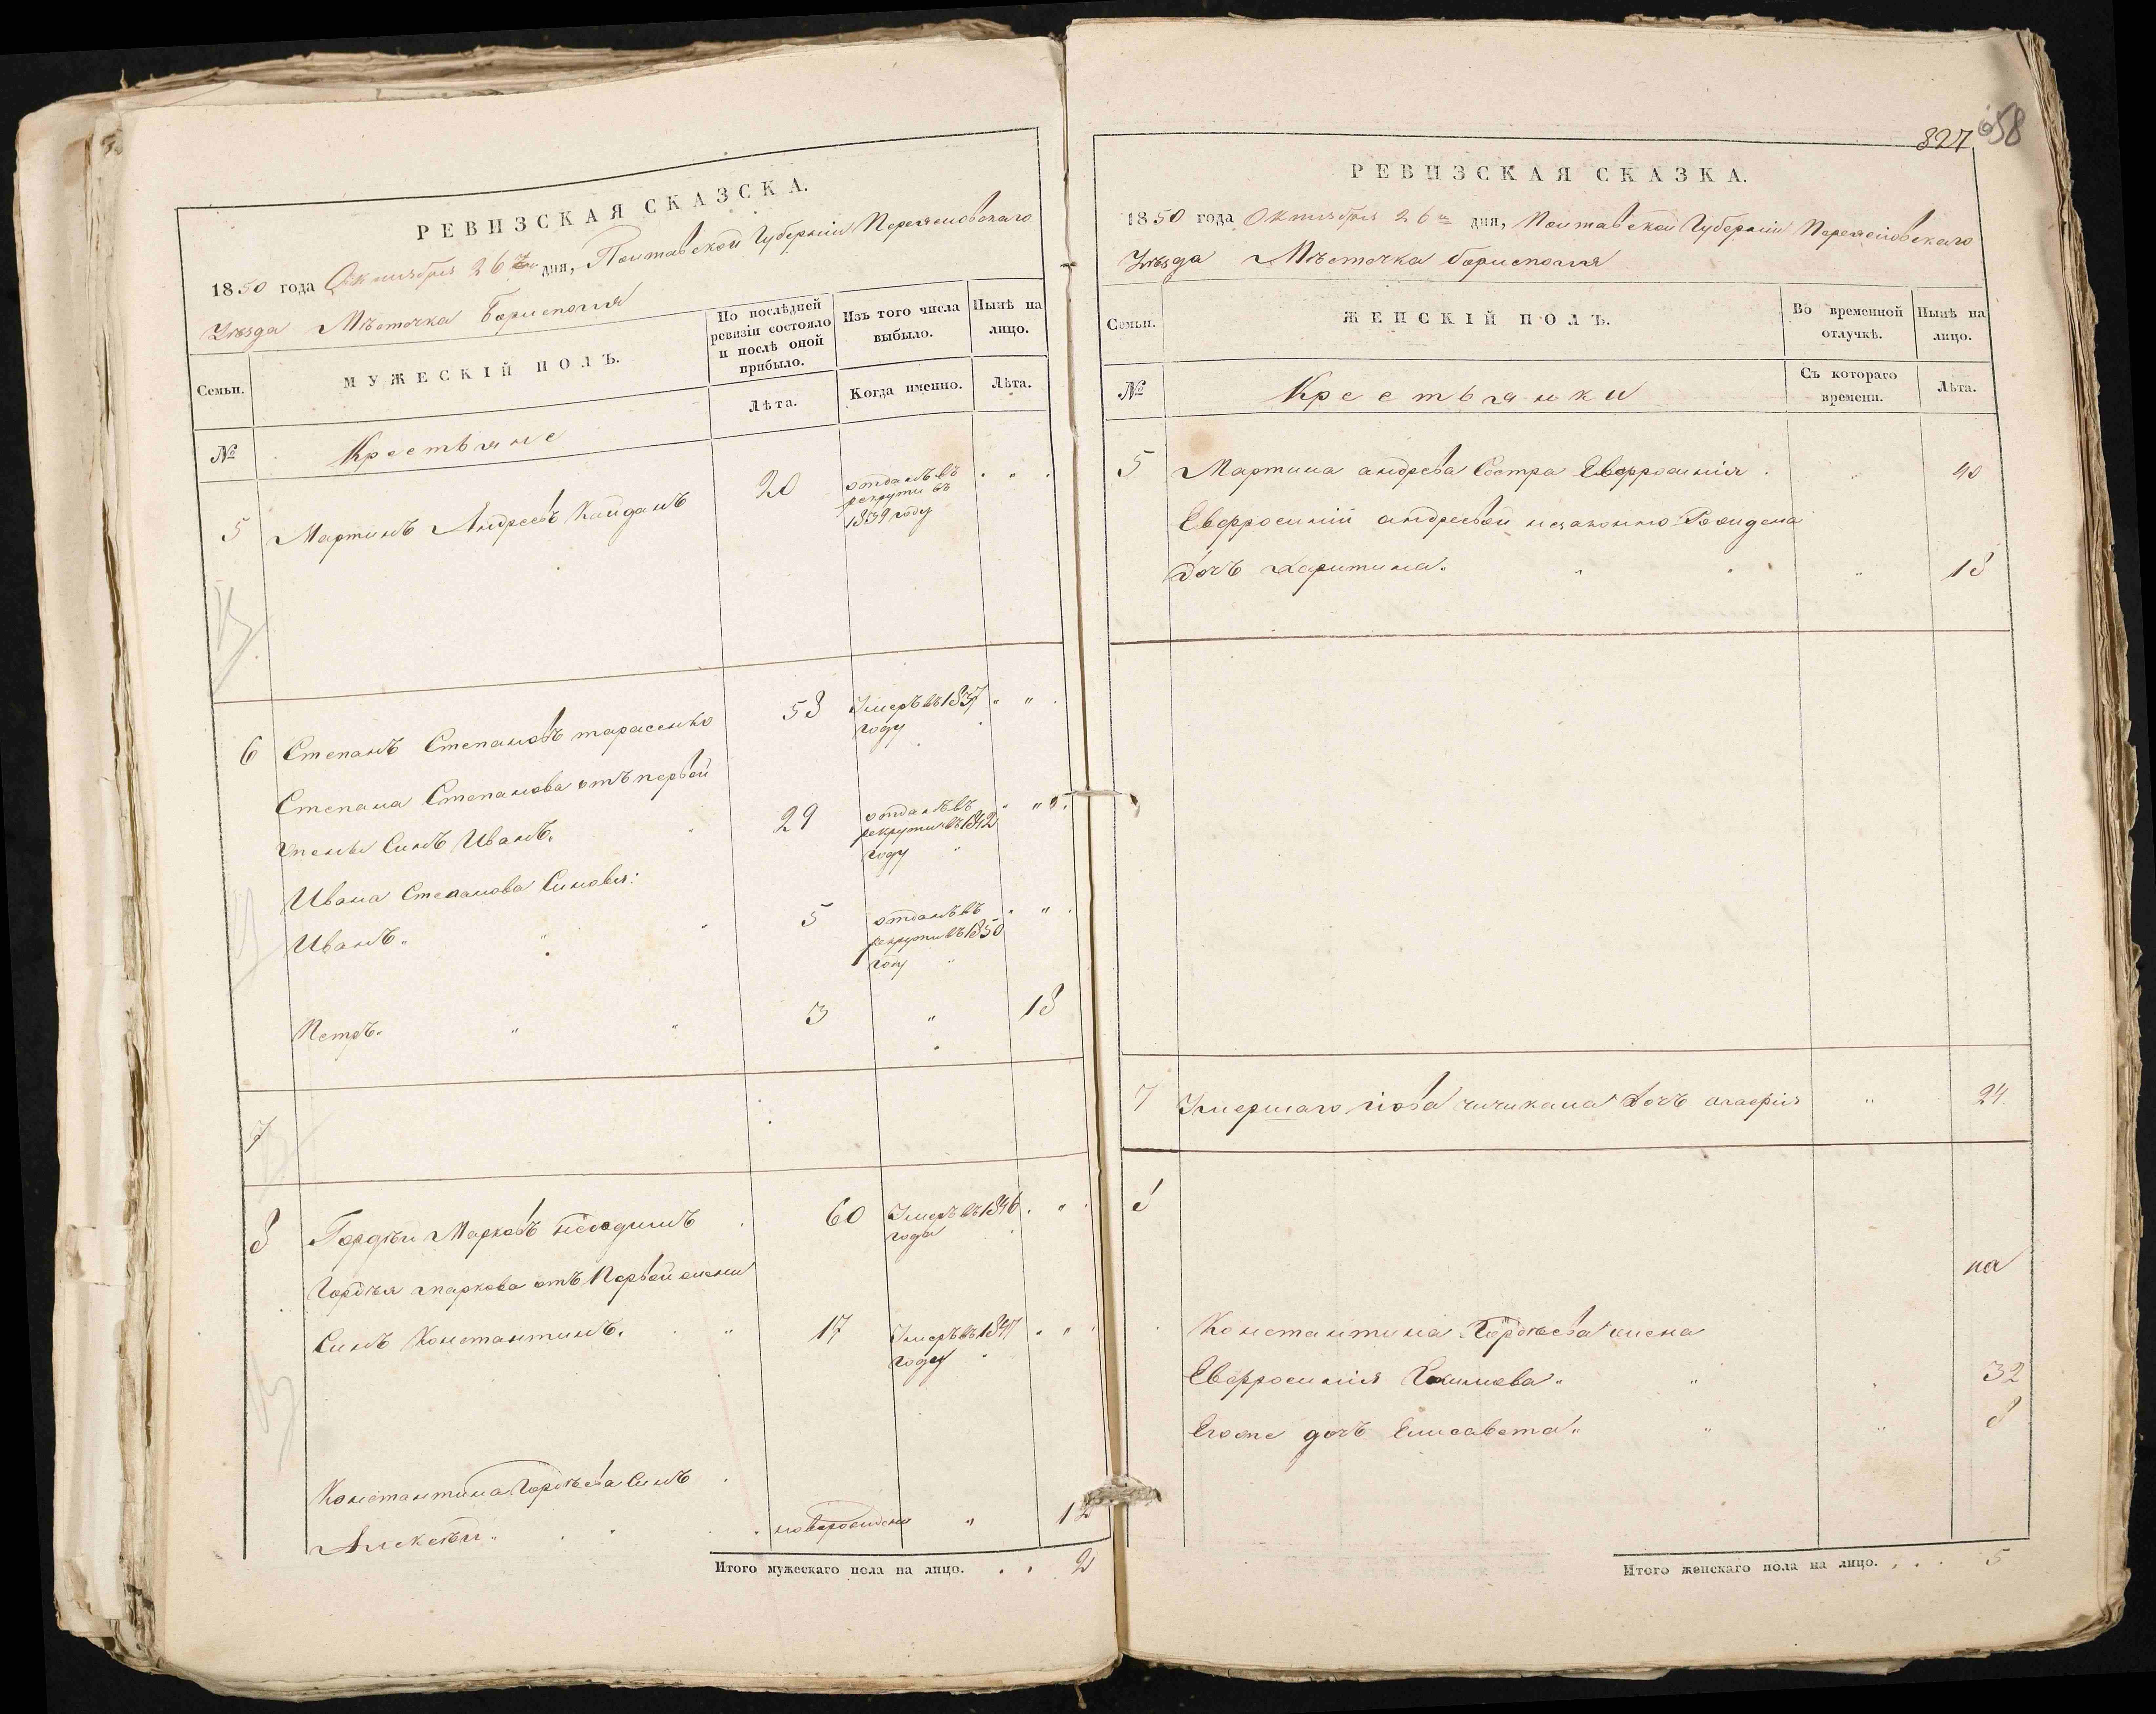 РЕВИЗСКАЯ СКАЗСКА.
1850 года Октября 26го дня, Полтавской Губерніи Переяславского
Уезда Мѣсточка Борисполя
Семьи.
МУЖЕСКІЙ ПОЛЪ.
По послѣдней ревизіи состояло и послѣ оной прибыло.
Изъ того числа выбыло.
Нынѣ на лицо.
№
Крестьяне
Лѣта.
Когда именно.
Лѣта.
5 Мартинъ Андреевъ Кайданъ 20 отданъ въ
рекрути въ
1839 году
6 Степанъ Степановъ тарасенко 53 Умеръ въ 1837
году
Степана Степанова отъ первой
жены Синъ Иванъ. 29 отданъ въ
рекрути въ 1842
году
Ивана Степанова Синовья:
Иванъ. 5 отданъ въ
рекрути въ 1850
году
Петръ. 3 " 18
7
8 Гордѣй Марковъ 60 Умеръ въ 1846
года
Гордѣя маркова отъ Первой жени
Синъ Константинъ. 17 Умеръ въ 1847
году
Константина Гордѣева Синъ
Алексѣй " новорожденъ " 12
Итого мужескаго пола на лицо. . . 2
827
658
РЕВИЗСКАЯ СКАЗКА.
1850 года Октября 26го дня, Полтавской Губерніи Переяславского
Уезда Мѣсточка борисполя
Семьи.
ЖЕНСКІЙ ПОЛЪ.
Во временной отлучкѣ.
Нынѣ на лицо.
№
Крестьянки
Съ котораго времени.
Лѣта.
5 Мартина андреева Сестра Евфросинія . " 40
Евфросиніи андреевой незаконно Рожденна
дочъ Харитина. " 18
7 Умершаго іова чичикала дочъ " 24
8
на
Константина Гордѣева жена
Евфросинія " 32
Егоже дочъ Елисавета " " 8
Итого женскаго пола на лицо. . . . 5